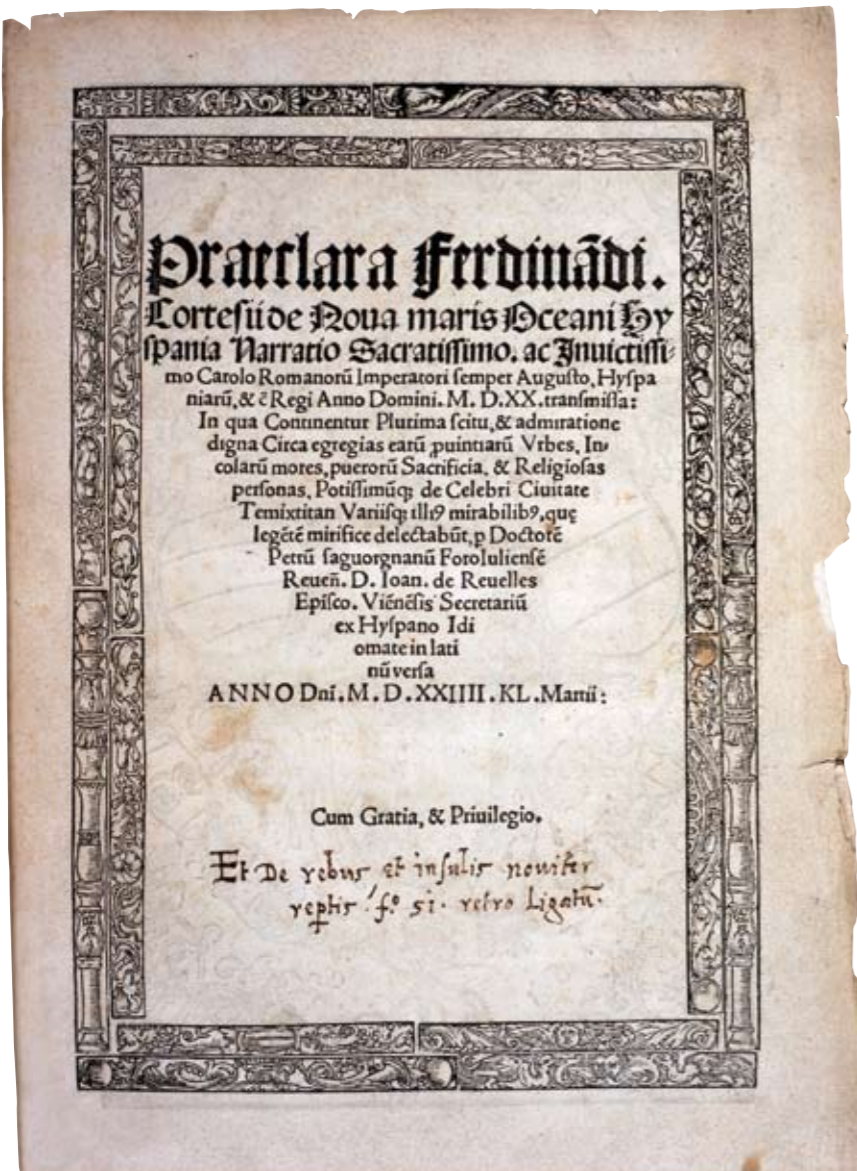 Praeclara Ferdinãdi.
Cortesii de Noua maris Oceani Hy
ſpania Narratio Sacratiſſimo. ac Inuictiſſi⸗
mo Carolo Romanorũ Imperatori ſemper Auguſto, Hyſpa
niarũ, & c̃ Regi Anno Domini. M. D. XX. tranſmiſſa:
In qua Continentur Plurima ſcitu, & admiratione
digna Circa egregias earũ ꝓuintiarũ Vrbes, In⸗
colarũ mores, puerorũ Sacrificia, & Religioſas
perſonas, Potiſſimũq; de Celebri Ciuitate
Temixtitan Variiſq; illiꝰ mirabilibꝰ, quę
legẽtẽ mirifice delectabũt, p Doctorẽ
Petrũ ſaguorgnanũ Foroiulienſẽ
Reuen̄. D. Ioan. de Reuelles
Epiſco. Viẽnẽſis Secretariũ
ex Hyſpano Idi
omate in lati
nũ verſa
ANNO Dni. M. D. XXIIII. KL. Martii:
Cum Gratia, & Priuilegio.
Et De rebus et inſulis nouiter
reꝑtis fº 51. retro Ligatũ.